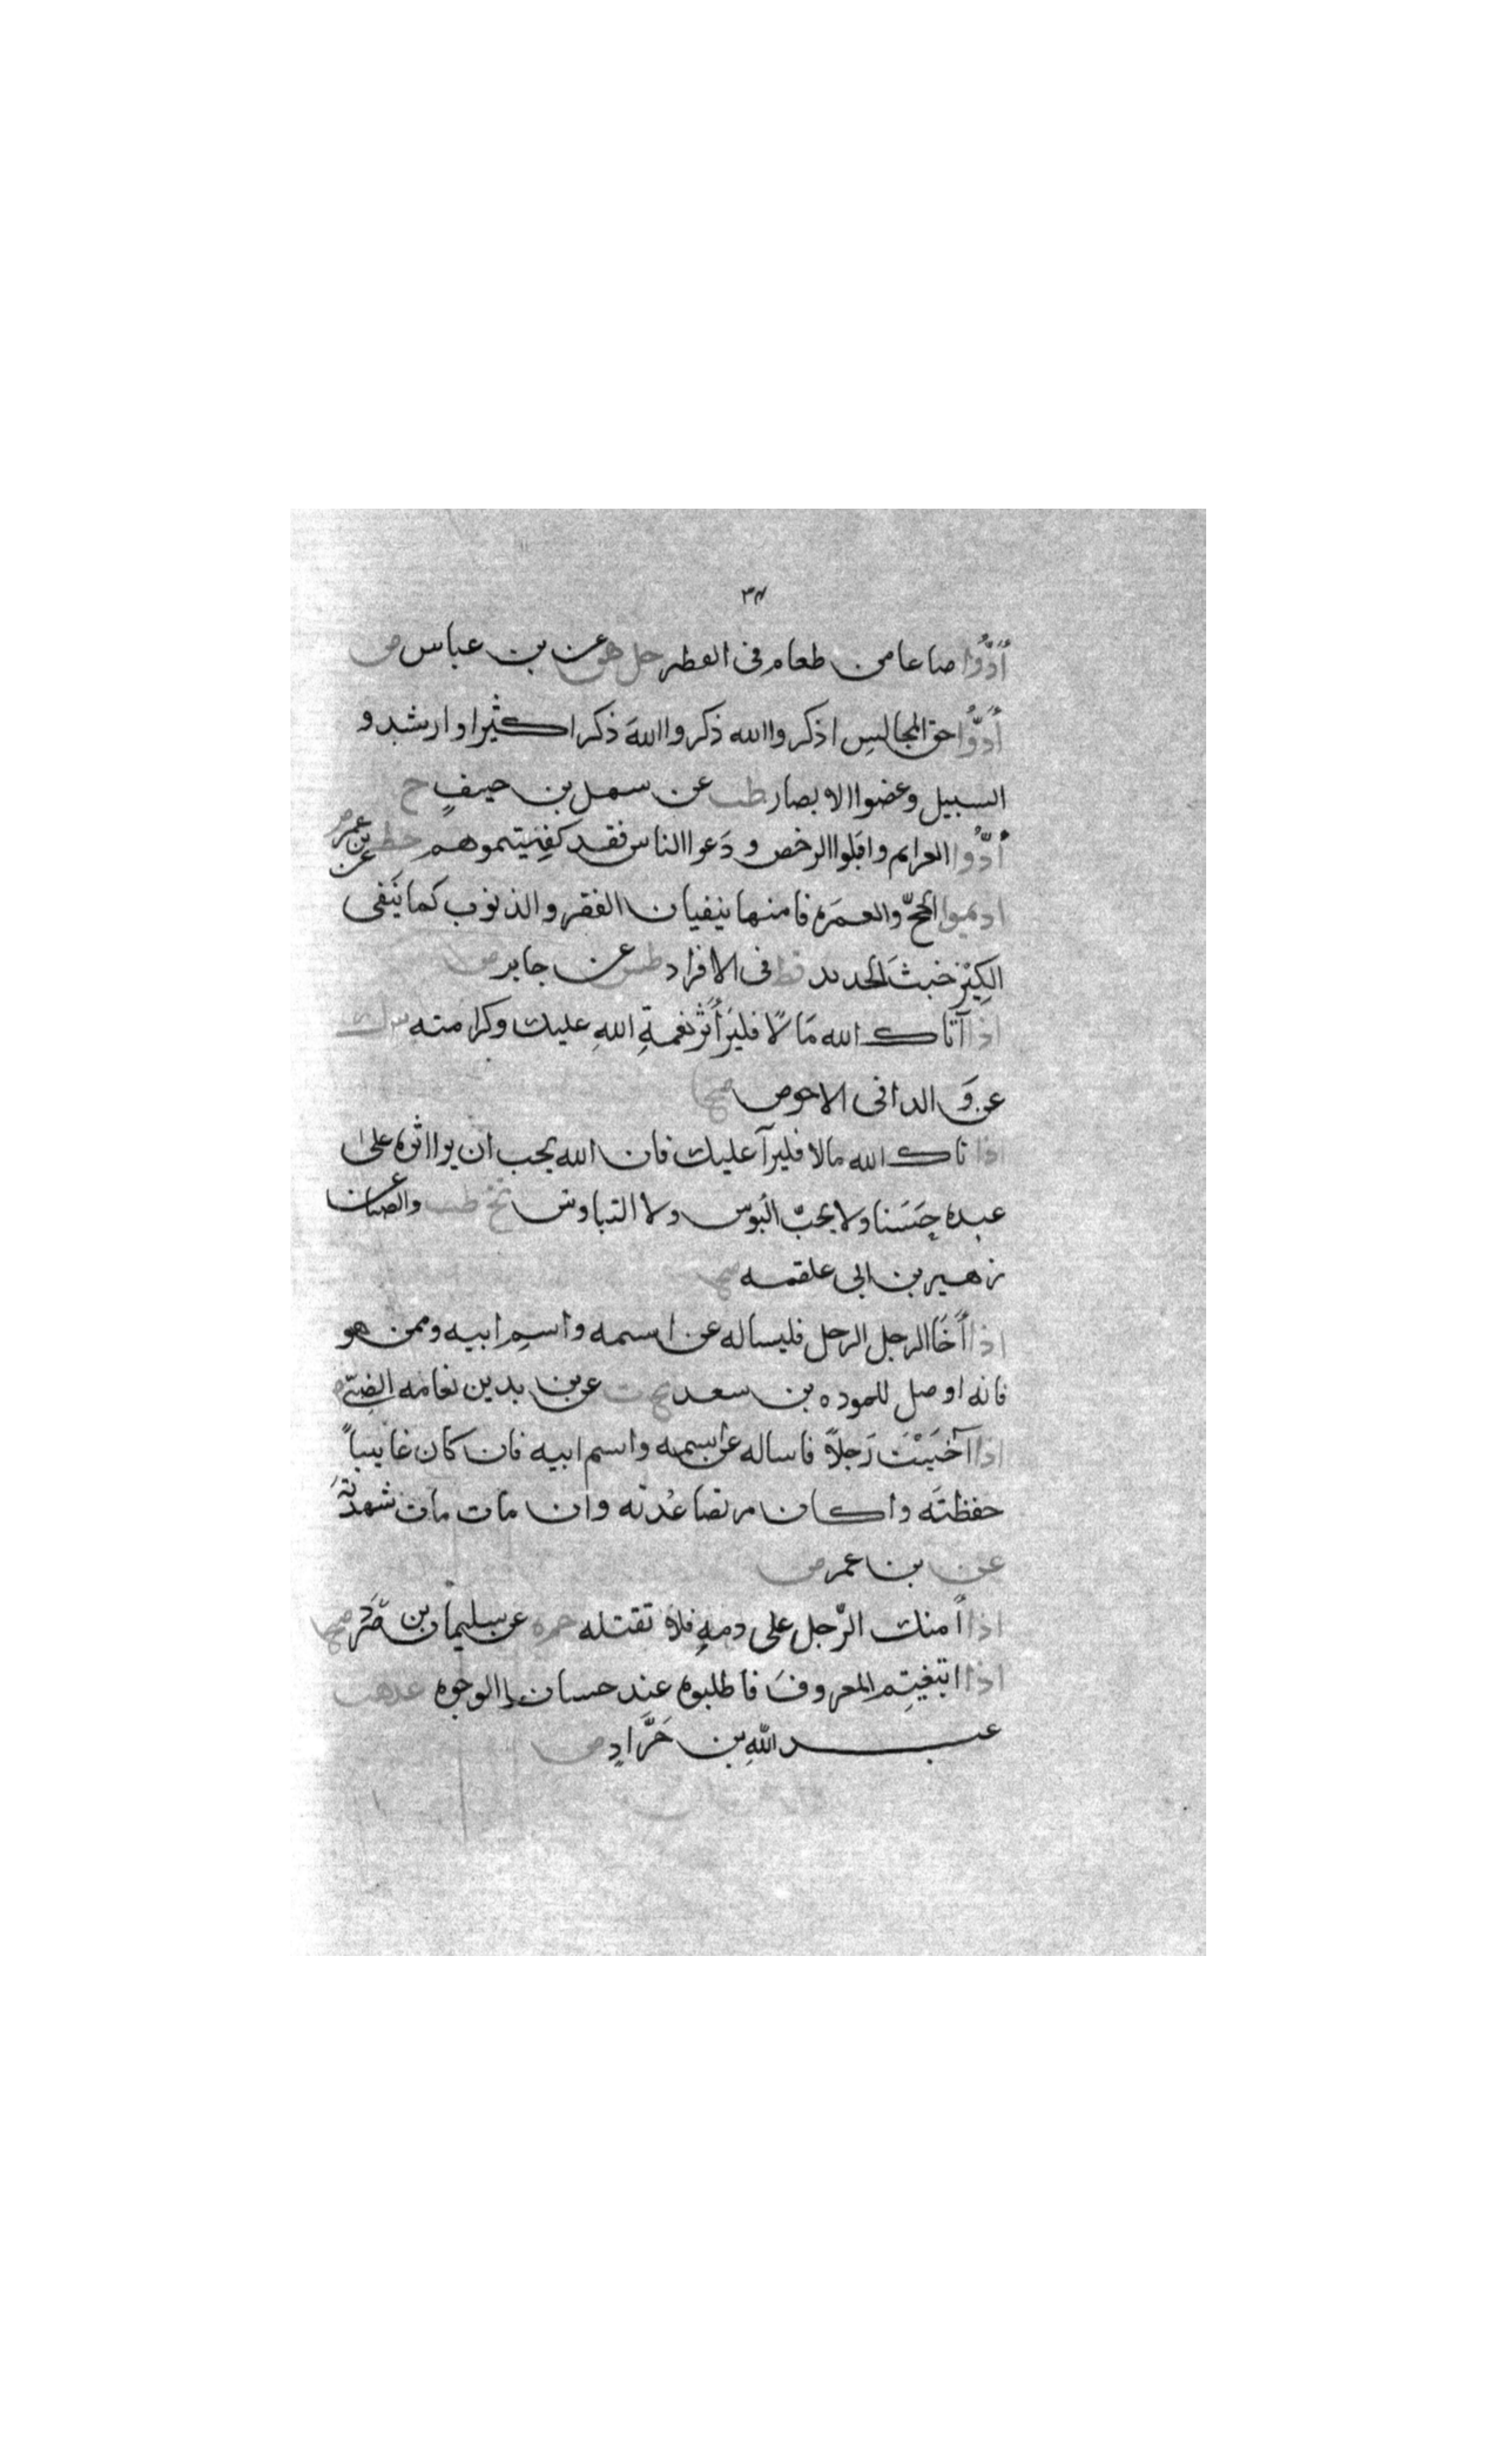 ٣٤
أَدُّوا صاعا من طعام فى الفطر حل هق عن بن عباس ض
أَدُّوا حق المجالسِ اذكروا الله ذكروا اللهَ ذكرا كثيرا وارشدو
السبيل وغضوا الابصار طب عن سهل بن حنيفٍ ح
أَدُّوا العزايم واقبلوا الرخص ودَعوا الناس فقد كفيتموهم خط عن بن عمر
اديموا الحجّ والعمَره فامنها ينفيان الفقر والذنوب كما يَنفى
الكِيْر خبثَ الحديد قط فى الافراد طس عن جابر ض
اذا آتاك الله مَالًا فليَرَ أثَرُ نعمةِ اللهِ عليك وكرامته
عن وَالد ابى الاحوص صحـ
اذا تاك الله مالا فليرآ عليك فان الله يحب ان يرا اثره على
عبده حِسَنا ولا يحبّ البُوس ولا التباوس تخ طب والضيا عن
زهير بن ابى علقمه صحـ
اذا أَخَا الرجل الرجل فليساله عن اسمه واسمِ ابيه وممن هو
فانه اوصل للموده بن سعد تخ ت عن بن يديد بن نعامه الضبّى
اذا آخَيْتَ رَجلاً فاساله عن اسمه واسم ابيه فان كان غايباً
حفظتَه وا كان مرتضا عُدته وان مات مات شهدتَهُ
عن بن عمر ض
اذا أمنك الرّجل على دمهِ فلا تقتله حم ه عن سليمان بن صُرَد صحـ
اذا ابتغيتم المعروفَ فاطلبوه عند حسان الوجوه عد هب
عبد اللهِ بن جَرَّادٍ ض